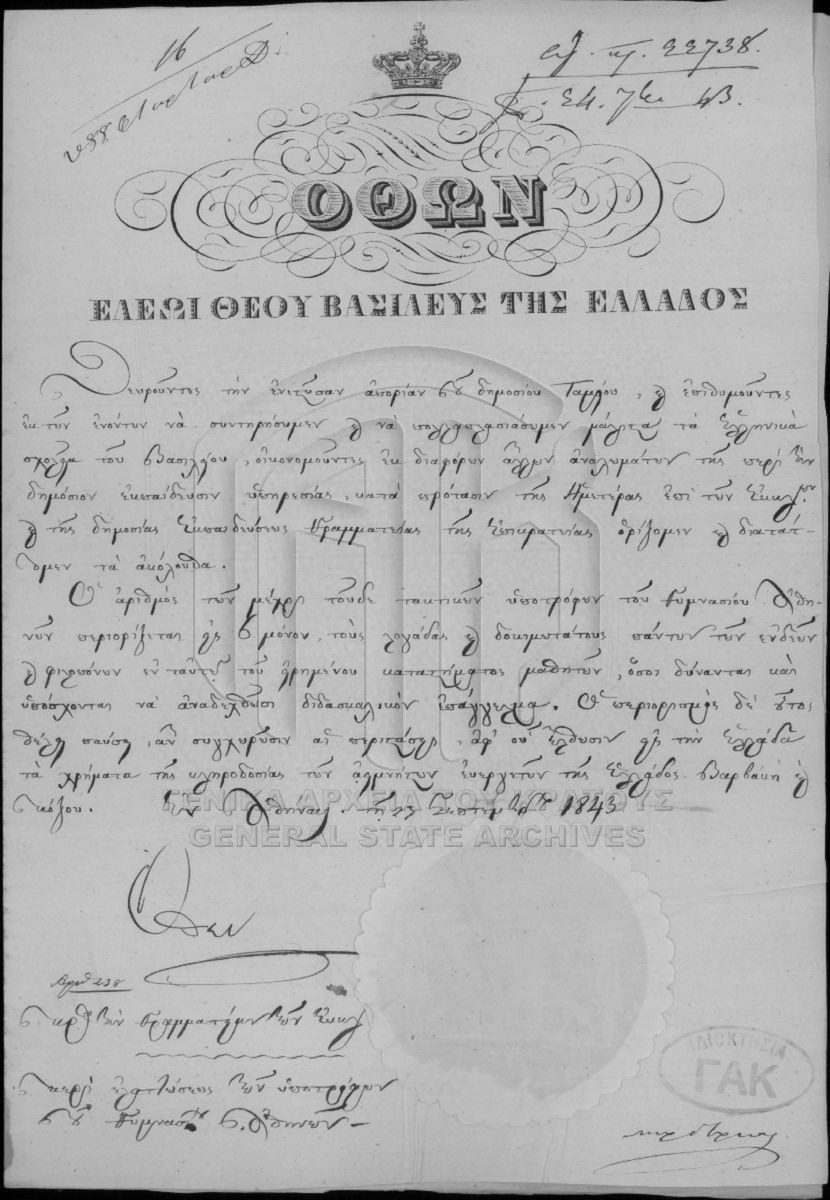 16
αρ. πρ. 22738.
24. 7βρ. 43.
ΟΘΩΝ
ΕΛΕΩΙ ΘΕΟΥ ΒΑΣΙΛΕΥΣ ΤΗΣ ΕΛΛΑΔΟΣ
Θεωροῦντες τὴν ἐνεστῶσαν ἀπορίαν τοῦ δημοσίου Ταμείου, καὶ ἐπιθυμοῦντες
ἐκ τῶν ἐνόντων νὰ συντηρήσωμεν καὶ νὰ πολλαπλασιάσωμεν μάλιστα τὰ Ἑλληνικὰ
σχολεῖα τοῦ Βασιλείου, οἰκονομοῦντες ἐκ διαφόρων ἄλλων ἀναλωμάτων τῆς περὶ τὴν
δημόσιον ἐκπαίδευσιν ὑπηρεσίας, κατὰ πρότασιν τῆς Ἡμετέρας ἐπὶ τῶν Ἐκκλ/κῶν
καὶ τῆς δημοσίας Ἐκπαιδεύσεως Γραμματείας τῆς Ἐπικρατείας ὁρίζομεν καὶ διατάτ-
τομεν τὰ ἀκόλουθα.
Ὁ ἀριθμὸς τῶν μέχρι τοῦδε τακτικῶν ὑποτρόφων τοῦ Γυμνασίου Ἀθη-
νῶν περιορίζεται εἰς 6 μόνον, τοὺς λογάδας καὶ δοκιμωτάτους πάντων τῶν ἐνδεῶν
καὶ φιλοπόνων ἐνταῦθα τοῦ εἰρημένου καταστήματος μαθητῶν, ὅσοι δύνανται καὶ
ὑπόσχονται νὰ ἀναδεχθῶσι διδασκαλικὸν ἐπάγγελμα. Ὁ περιορισμὸς δὲ οὗτος
θέλει παύσει, ἂν συγχωρῶσιν αἱ περιστάσεις, ἀφ' οὗ ἔλθωσιν εἰς τὴν Ἑλλάδα
τὰ χρήματα τῆς κληροδοσίας τῶν ἀειμνήστων εὐεργετῶν τῆς Ἑλλάδος Βαρβάκη καὶ
Ἐν Ἀθήναις τῇ 23 Σεπτεμβρίου 1843
Ὄθων
Ἀριθ 238
Πρὸς τὴν Γραμματείαν τῶν Ἐκκλ
Περὶ ἐλαττώσεως τῶν ὑποτρόφων
τοῦ Γυμνασίου Ἀθηνῶν
ΓΕΝΙΚΑ ΑΡΧΕΙΑ ΤΟΥ ΚΡΑΤΟΥΣ
GENERAL STATE ARCHIVES
ΙΔΙΟΚΤΗΣΙΑ
ΓΑΚ